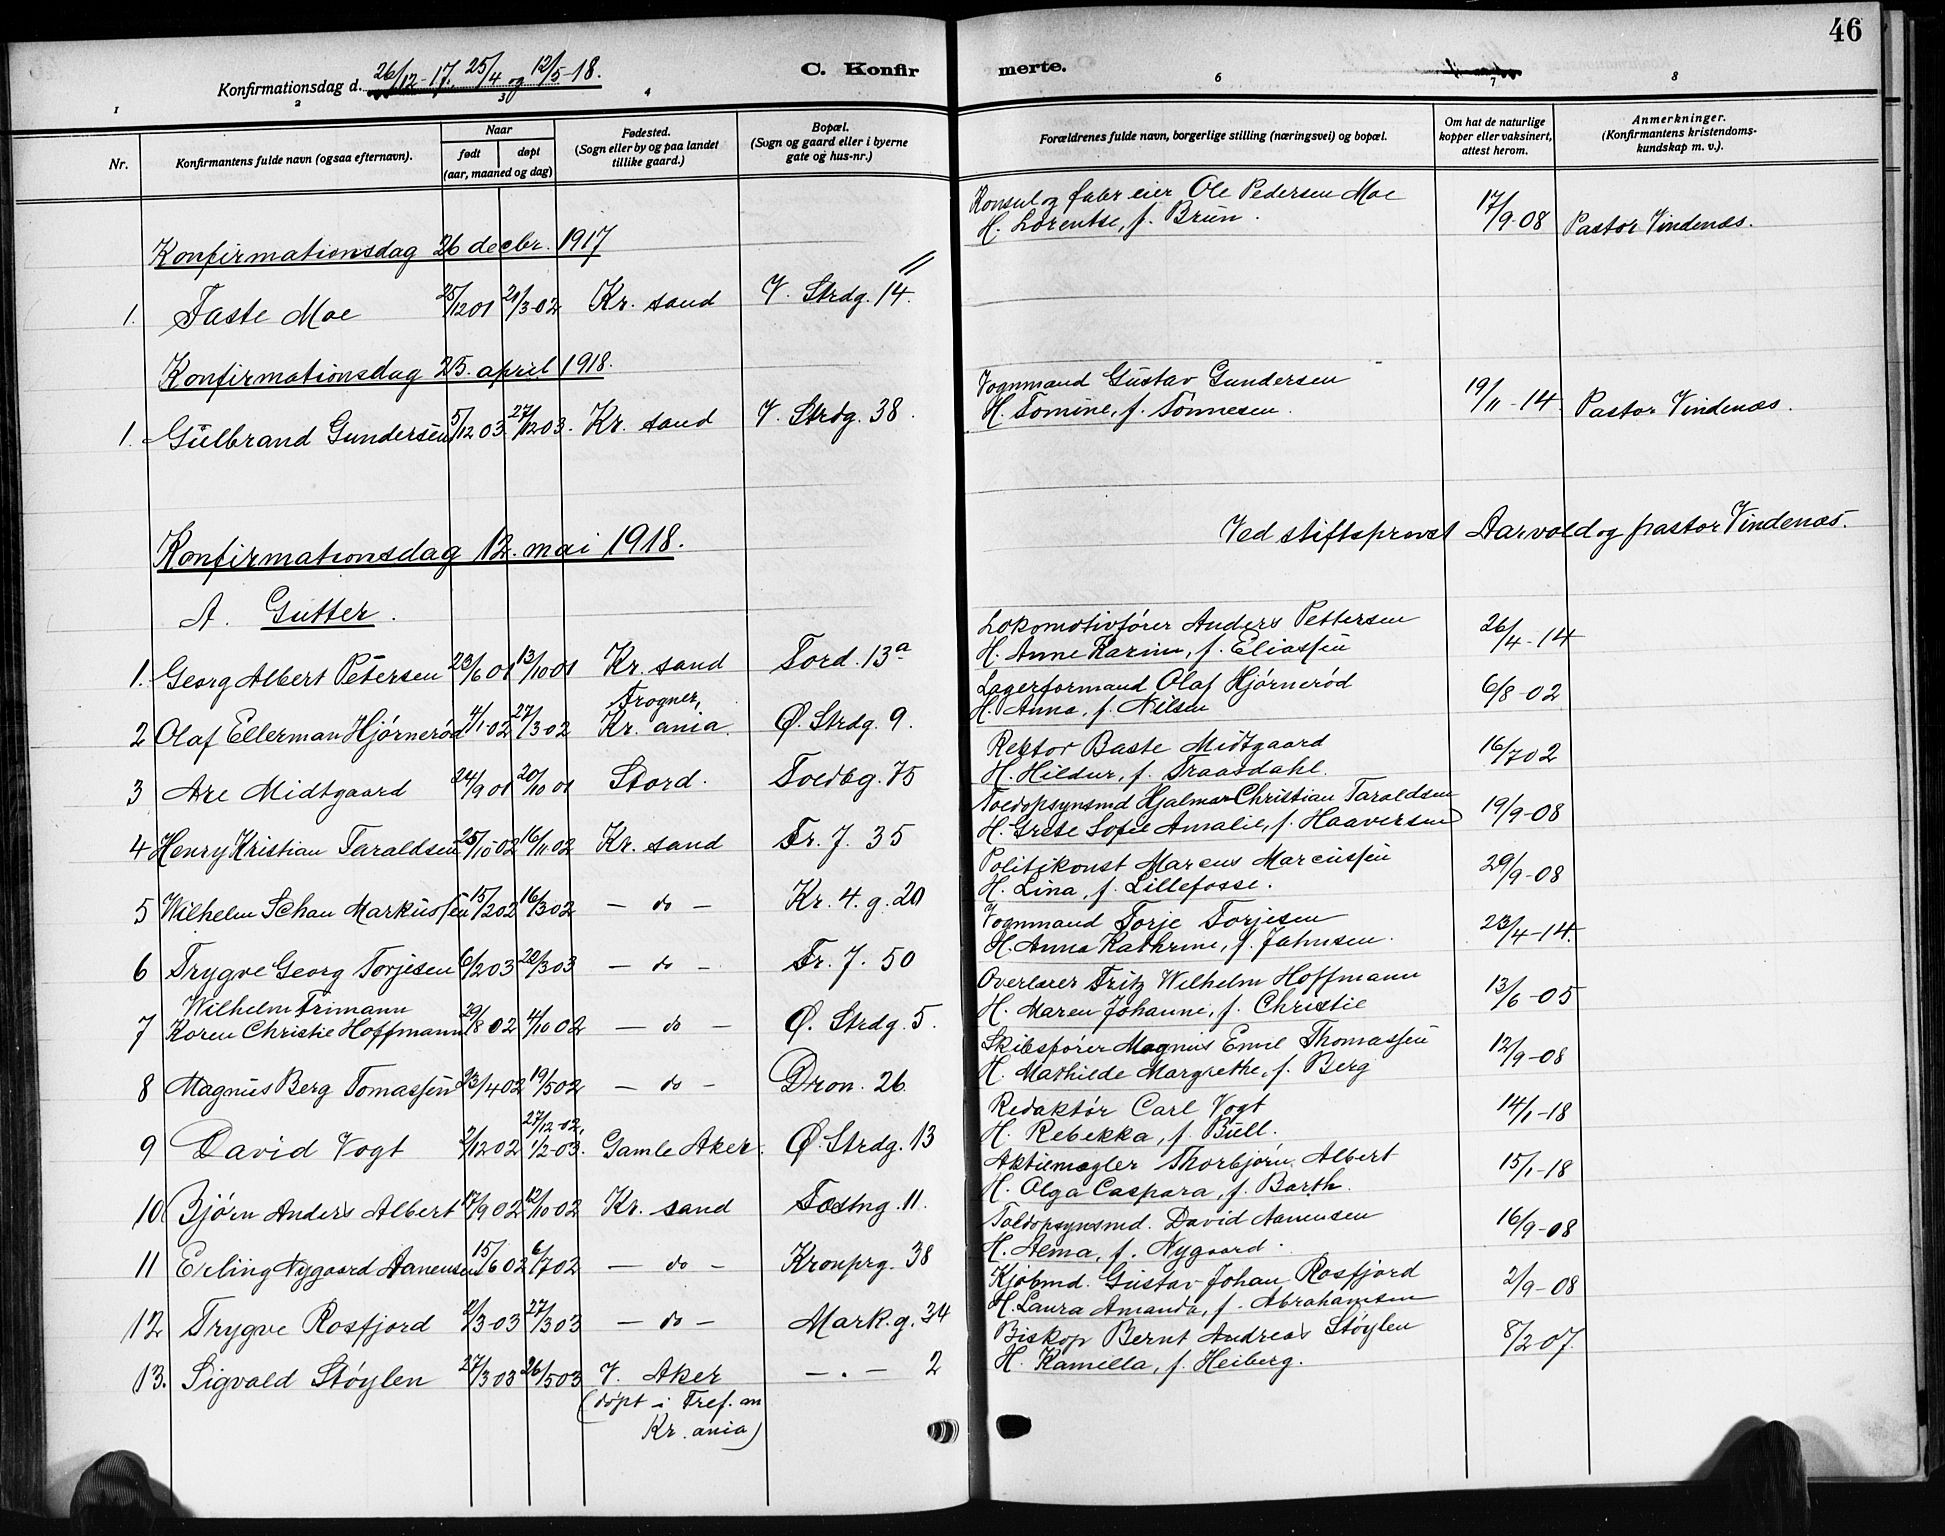 46
Konfirmationsdag d. 26/12-17. 25/4 og 12/5-18. C. Konfirmerte.
1 2 3 4 6 7 8
Nr.
Konfirmantens fulde navn (ogsaa efternavn).
Naar
født døpt
(aar, maaned og dag)
Fødested.
(Sogn eller by og paa landet
tillike gaard.)
Bopæl.
(Sogn og gaard eller i byerne
gate og hus-nr.)
Forældrenes fulde navn, borgerlige stilling (næringsvei) og bopæl.
Om hat de naturlige
kopper eller vaksinert,
attest herom.
Anmerkninger.
(Konfirmantens kristendoms-
kundskap m. v.).
Konfirmationsdag 26 decbr. 1917
1. Taste Moe 25/12 01 21/3-02 Kr. sand V. Strdg. 14.
Konsul og fabr eier Ole Pedersen Moe
H. Lorentse, f. Brün. 17/9-08 Pastor Vindenæs.
Konfirmationsdag 25. april 1918.
1. Gülbrand Gundersen 5/12 03 27/12 03. Kr. sand V. Strdg. 38.
Vognmand Güstav Gundersen
H. Tomine, f. Tønnesen. 19/11-14 Pastor Vindenæs.
Konfirmationsdag 12. mai 1918.
Ved stiftsprovst Aarvold og pastor Vindenæs.
A. Gutter.
1. Georg Albert Petersen 23/6 01 13/10 01 Kr. sand Tord. 13a
Lokomotivfører Anders Pettersen
H. Anne Karine, f. Eliassen 26/4-14
2 Olaf Ellerman Hjørnerød 4/1-02 27/3 02 Frogner, Kr. ania. Ø. Strdg. 9.
Lagerformand Olaf Hjørnerød
H. Anna, f. Nilsen 6/8-02
3 Are Midtgaard 24/9 01 20/10 01 Stord. Toldbg. 75
Rektor Baste Midtgaard
H. Hildur, f. Traasdahl. 16/7 02
4 Henry Kristian Taraldsen 25/10 02 16/11 02 Kr. sand Fr. 7. 35
Toldopsynsmd Hjalmar Christian Taraldsen
H. Grete Sofie Amalie, f. Haaversen 19/9-08
5 Wilhelm Schau Markussen 15/2 02 16/3 02 — do — Kr. 4. g. 20
Politikonst Marcus Marcussen
H. Lina, f. Lillefosse. 29/9-08
6 Trygve Georg Torjesen 6/2 03 22/3 03 — do — Fr. 7. 50
Vognmand Torje Torjesen
H. Anna Kathrine, f. Jahnsen. 23/4-14.
Wilhelm Frimann
7 Koren Christie Hoffmann 29/8 02 4/10 02 — do — Ø. Strdg. 5.
Overlærer Fritz Wilhelm Hoffmann
H. Maren Johanne, f. Christie 13/6-05
8 Magnus Berg Tomassen 23/4 02 19/5 02 — do — Dron. 26
Skibsfører Magnus Emil Thomassen
H. Mathilde Margrethe, f. Berg 12/9-08
9 David Vogt 2/12 02 27/12-02, 1/2-03. Gamle Aker. Ø. Strdg. 13
Redaktør Carl Vogt
H. Rebekka, f. Büll. 14/1-18
10 Bjørn Anders Albert 17/9 02 12/10 02 Kr. sand Fæstng. 11.
Aktiemægler Thorbjørn Albert
H. Olga Caspara, f. Barth. 15/1-18
11 Erling Nygaard Aanensen 15/6 02 6/7 02 — do — Kronprg. 38
Toldopsynsmd. David Aanensen
H. Alma, f. Nygaard. 16/9-08
12 Trygve Rosfjord 2/3-03 27/3 03 — do — Mark. g. 34
Kjøbmd. Güstav Johan Rosfjord
H. Laura Amanda, f. Abrahamsen 2/9-08
13. Sigvald Støylen 27/3 03 26/5 03 V. Aker — . — 2
Biskop Bernt Andreas Støylen
H. Kamilla, f. Heiberg. 8/2-07.
(døpt i Tref. an
Kr. ania)